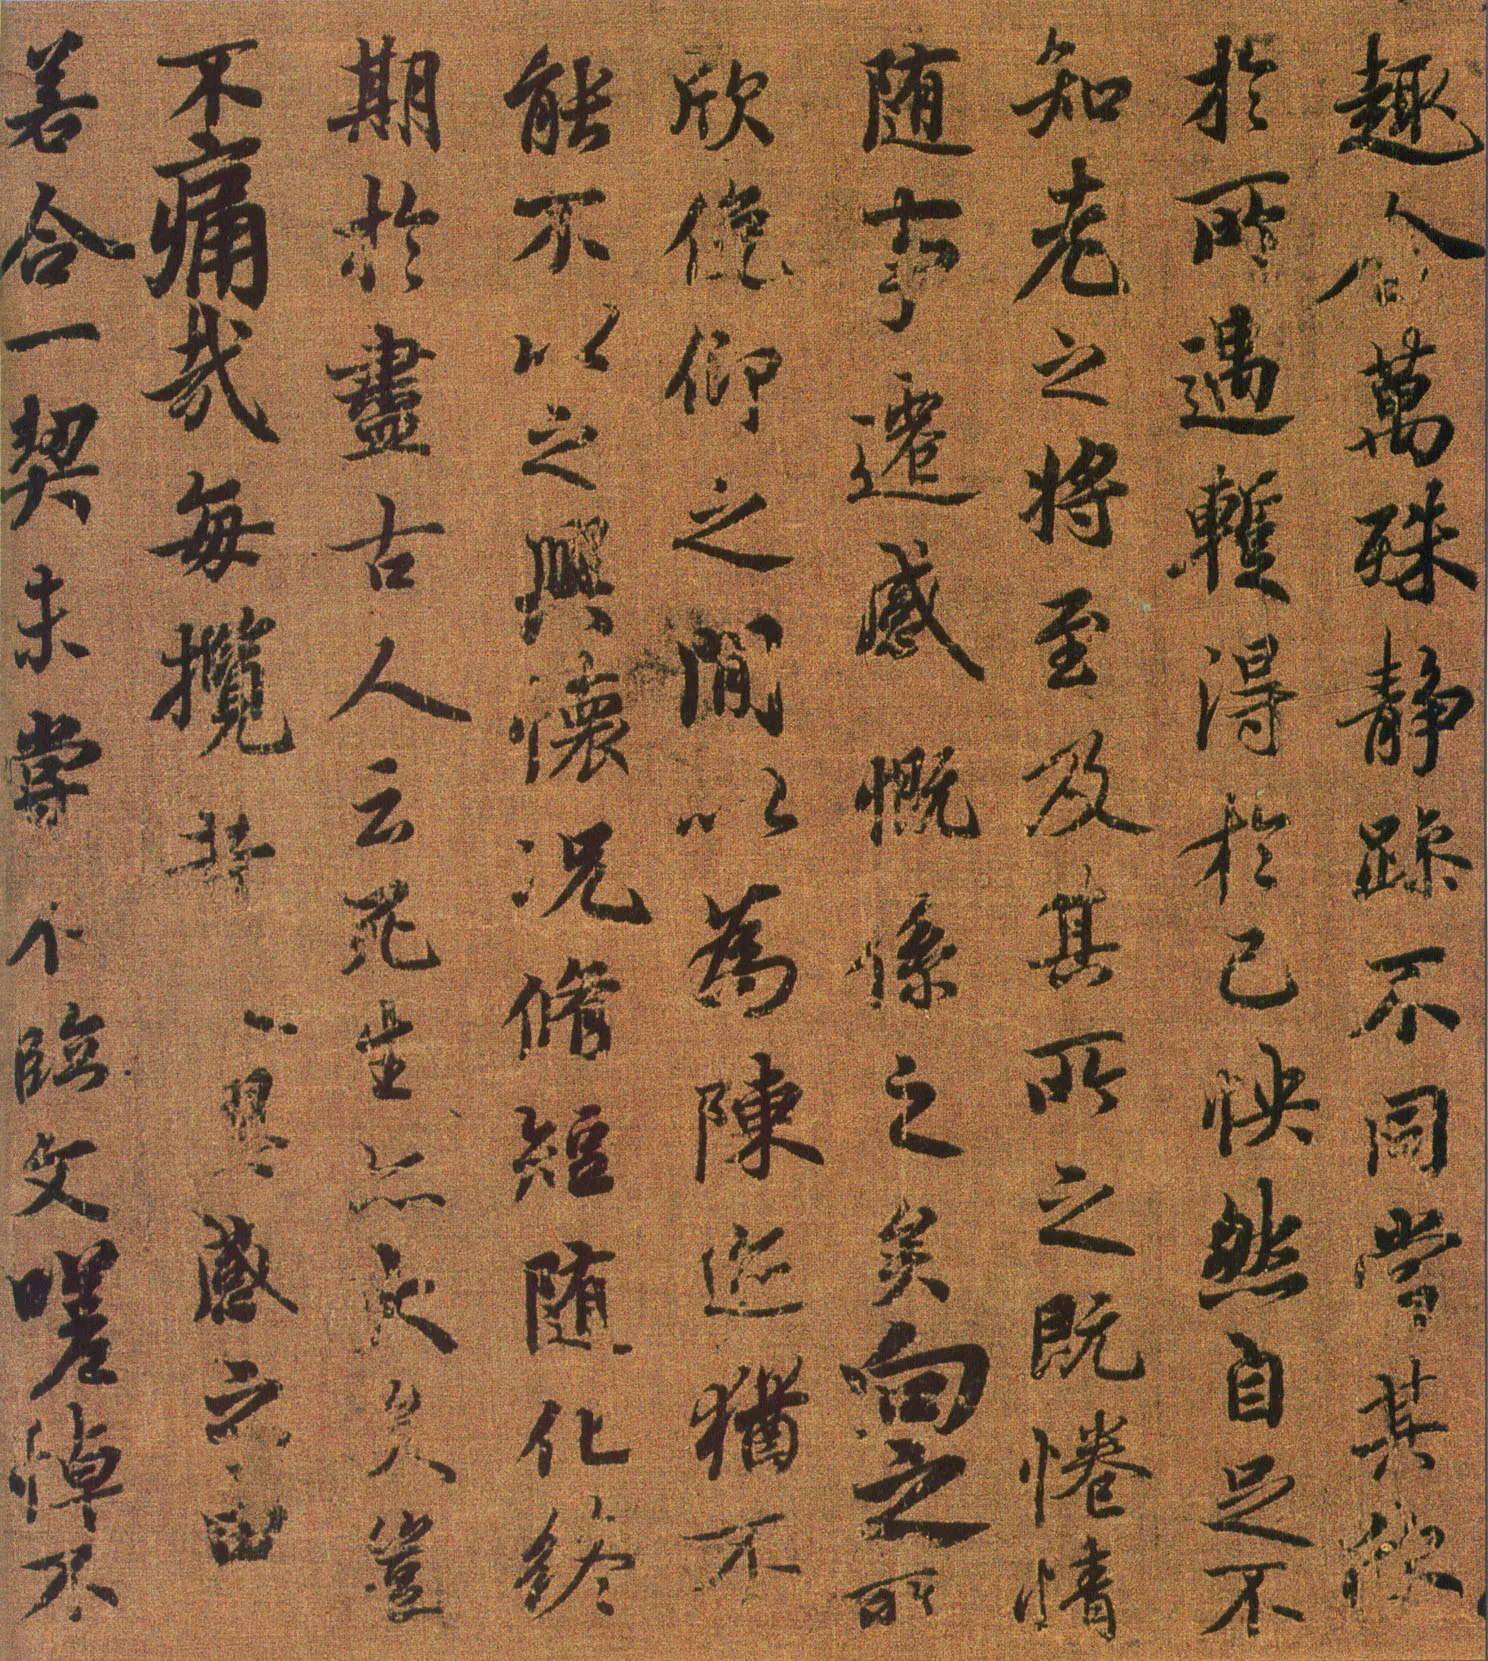 趣舍萬殊靜躁不同當其欣
於所遇蹔得於己怏然自足不
知老之將至及其所之既惓情
随事遷感慨係之矣向之所
欣俛仰之閒以為陳迹猶不
能不以之興懷況脩短随化終
期於盡古人云死生亦大矣豈
不痛哉每攬昔興感之由
若合一契未嘗不臨文嗟悼不